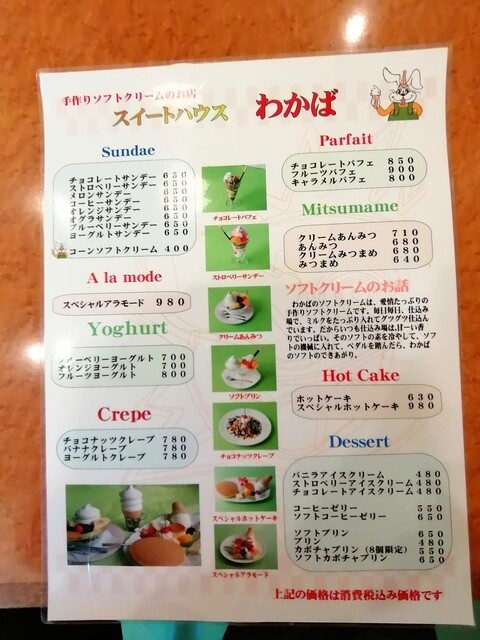 手作りソフトクリームのお店
スイートハウス わかば
Sundae
チョコレートサンデー 650
ストロベリーサンデー 650
メロンサンデー 650
コーヒーサンデー 650
オレンジサンデー 650
オグラサンデー 650
ブルーベリーサンデー 650
ヨーグルトサンデー 650
コーンソフトクリーム 400
A la mode
スペシャルアラモード 980
Yoghurt
ブルーベリーヨーグルト 700
オレンジヨーグルト 700
フルーツヨーグルト 800
Crepe
チョコナッツクレープ 780
バナナクレープ 780
ヨーグルトクレープ 780
チョコレートパフェ
ストロベリーサンデー
クリームあんみつ
ソフトプリン
チョコナッツクレープ
スペシャルホットケーキ
スペシャルアラモード
Parfait
チョコレートパフェ 850
フルーツパフェ 900
キャラメルパフェ 800
Mitsumame
クリームあんみつ 710
あんみつ 680
クリームみつまめ 680
みつまめ 640
ソフトクリームのお話
わかばのソフトクリームは、愛情たっぷりの
手作りソフトクリームです。毎日毎日、仕込み
場で、ミルクをたっぷり入れてグツグツ仕込ん
でいます。だからいつも仕込み場は甘ーい香
りでいっぱい。そのソフトの素を冷やして、ソフ
トの機械に入れて、ペダルを踏んだら、わかば
のソフトのできあがり。
Hot Cake
ホットケーキ 630
スペシャルホットケーキ 980
Dessert
バニラアイスクリーム 480
ストロベリーアイスクリーム 480
チョコレートアイスクリーム 480
コーヒーゼリー 550
ソフトコーヒーゼリー 650
ソフトプリン 650
プリン 480
カボチャプリン (8個限定) 550
ソフトカボチャプリン 650
上記の価格は消費税込み価格です